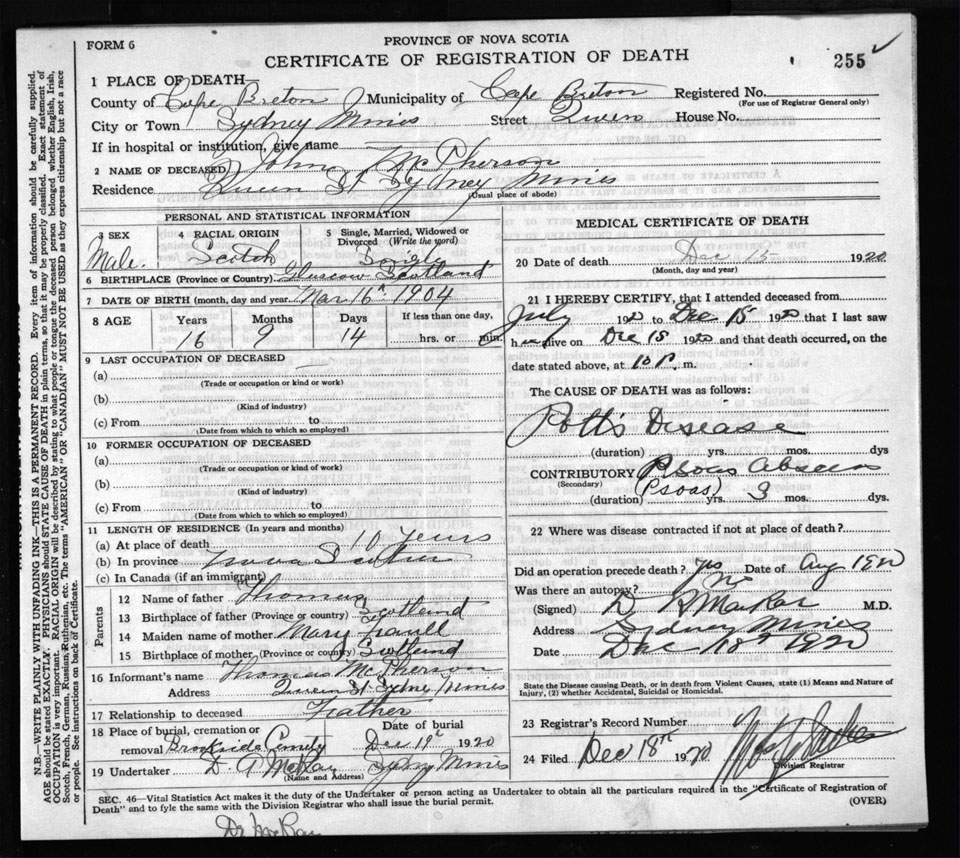 FORM 6
PROVINCE OF NOVA SCOTIA
CERTIFICATE OF REGISTRATION OF DEATH
255
1 PLACE OF DEATH—
County of Cape Breton Municipality of Cape Breton Registered No.
(For use of Registrar General only)
City or Town Sydney Mines Street Queen House No.
If in hospital or institution, give name
2 NAME OF DECEASED John McPherson
Residence Queen St Sydney Mines
(Usual place of abode)
PERSONAL AND STATISTICAL INFORMATION
3 SEX 4 RACIAL ORIGIN 5 Single, Married, Widowed or Divorced (Write the word)
Male. Scotch Single
6 BIRTHPLACE (Province or Country) Scotland
7 DATE OF BIRTH (month, day and year) Mar 16th 1904
8 AGE Years Months Days If less than one day,
16 9 14 hrs. or min.
9 LAST OCCUPATION OF DECEASED
(a)
(Trade or occupation or kind of work)
(b)
(Kind of industry)
(c) From to
(Date from which to which so employed)
10 FORMER OCCUPATION OF DECEASED
(a)
(Trade or occupation or kind of work)
(b)
(Kind of industry)
(c) From to
(Date from which to which so employed)
11 LENGTH OF RESIDENCE (In years and months)
(a) At place of death 10 years
(b) In province Nova Scotia
(c) In Canada (if an immigrant)
Parents
12 Name of father Thomas
13 Birthplace of father (Province or country) Scotland
14 Maiden name of mother Mary
15 Birthplace of mother (Province or country) Scotland
16 Informant's name Thomas McPherson
Address Queen St Sydney Mines
17 Relationship to deceased Father
18 Place of burial, cremation or removal Brookside Cemetery Date of burial Dec 19th 1920
19 Undertaker D. A McKay Sydney Mines
(Name and Address)
MEDICAL CERTIFICATE OF DEATH
20 Date of death Dec 15 1920
(Month, day and year)
21 I HEREBY CERTIFY, that I attended deceased from
July 1920 to Dec 15 1920 that I last saw
h alive on Dec 15 1920 and that death occurred, on the
date stated above, at 10 P. m.
The CAUSE OF DEATH was as follows:
Potts Disease
(duration) yrs. mos. dys
CONTRIBUTORY Psoas abscess
(Secondary) (Psoas)
(duration) yrs. 3 mos. dys.
22 Where was disease contracted if not at place of death?
Did an operation precede death? yes Date of Aug 1920
Was there an autopsy? No
(Signed) M.D.
Address Sydney Mines
Date Dec 18th 1920
State the Disease causing Death, or in death from Violent Causes, state (1) Means and Nature of
Injury, (2) whether Accidental, Suicidal or Homicidal.
23 Registrar's Record Number
24 Filed Dec 18th 1920
Division Registrar
SEC. 46—Vital Statistics Act makes it the duty of the Undertaker or person acting as Undertaker to obtain all the particulars required in the "Certificate of Registration of
Death" and to fyle the same with the Division Registrar who shall issue the burial permit.
(OVER)
N.B.—WRITE PLAINLY WITH UNFADING INK—THIS IS A PERMANENT RECORD. Every item of information should be carefully supplied.
AGE should be stated EXACTLY. PHYSICIANS should STATE CAUSE OF DEATH in plain terms, so that it may be properly classified. Exact statement of
OCCUPATION is very important. RACIAL ORIGIN will be described by stating to what people or tongue the deceased person belonged whether English, Irish,
Scotch, French, German, Russian, Ruthenian, etc. The terms "AMERICAN" OR "CANADIAN" MUST NOT BE USED as they express citizenship but not a race
or people. See instructions on back of Certificate.